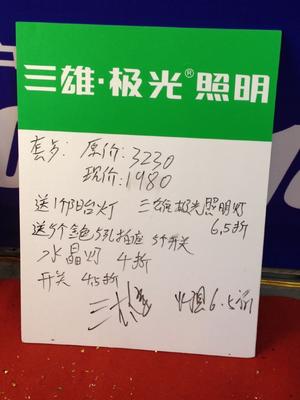 三雄·极光®照明
套房: 原价:3230
现价:1980
送1个阳台灯 三雄极光照明灯
6.5折
送5个金色5孔插座 5个开关
水晶灯 4折
开关 4.5折
三雄 6.5折